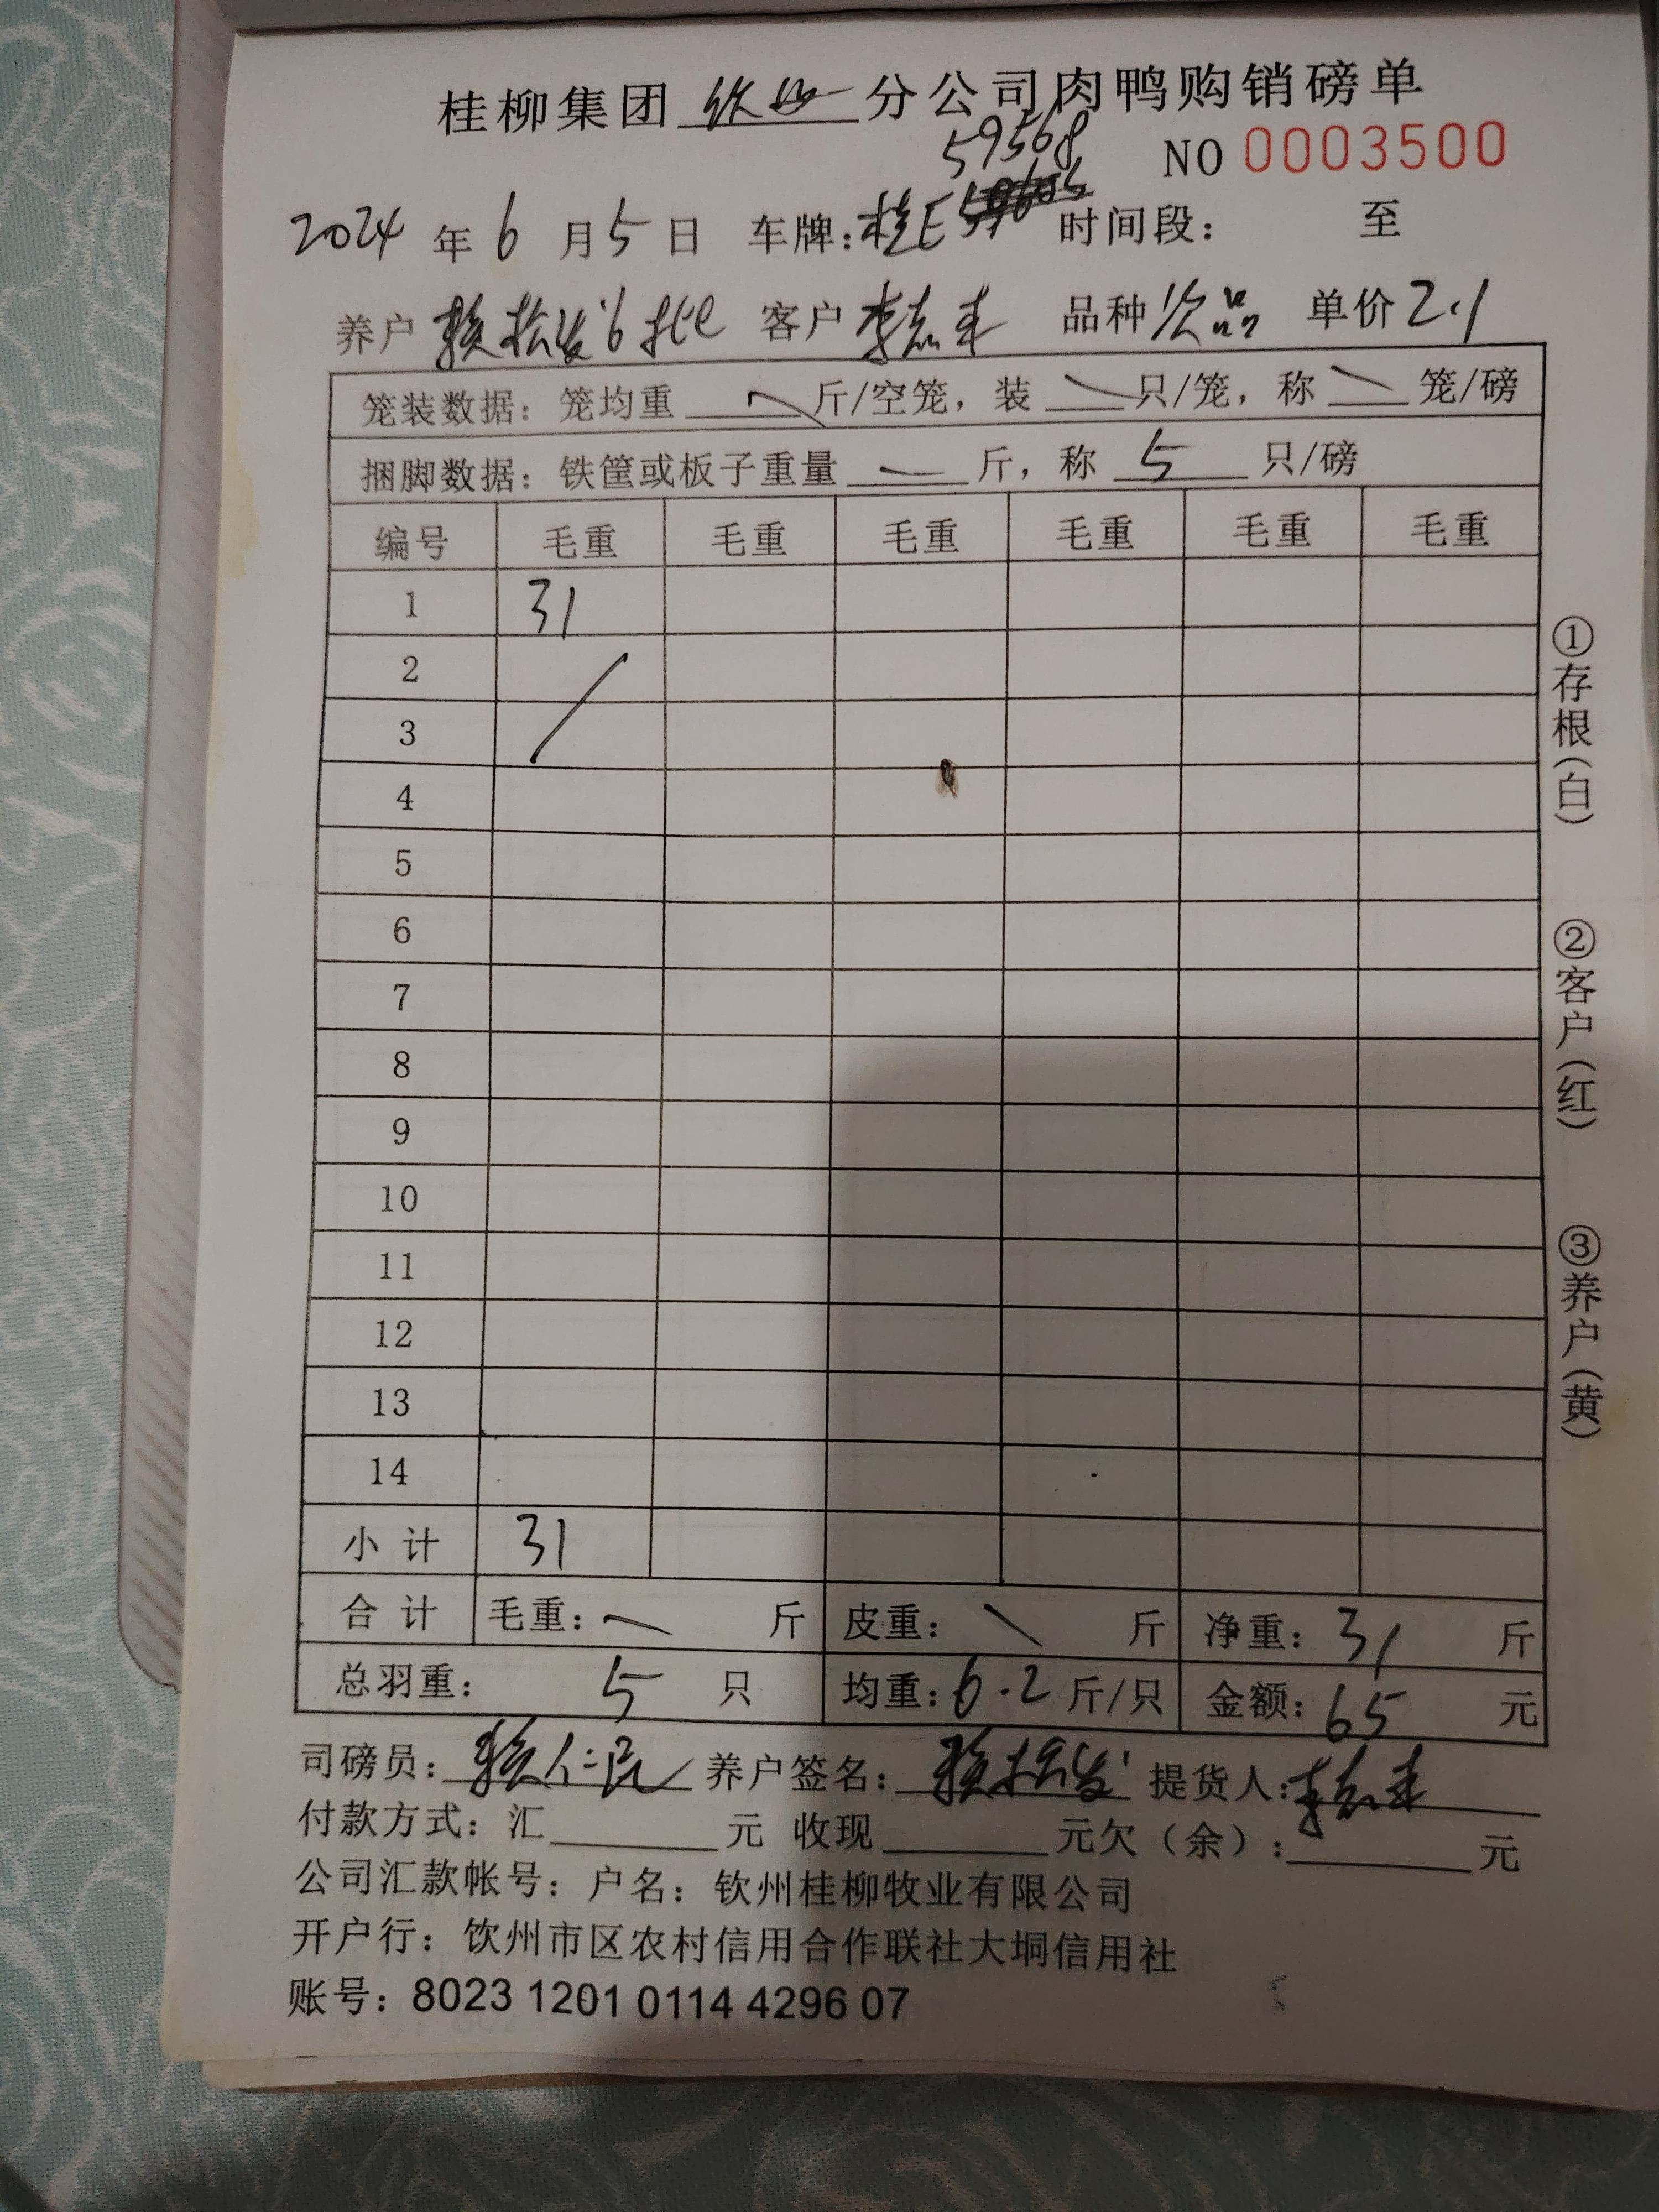 桂柳集团钦州分公司肉鸭购销磅单
59568
NO 0003500
2024年6月5日 车牌:桂E 时间段: 至
养户 赖松发6批 客户 李志丰 品种 次品 单价 2.1
笼装数据: 笼均重 斤/空笼, 装 只/笼, 称 笼/磅
捆脚数据: 铁筐或板子重量 斤, 称 5 只/磅
编号 毛重 毛重 毛重 毛重 毛重 毛重
1 31
2
3
4
5
6
7
8
9
10
11
12
13
14
小计 31
合计 毛重: 斤 皮重: 斤 净重: 31 斤
总羽重: 5 只 均重: 6.2 斤/只 金额: 65 元
司磅员: 赖仁民 养户签名: 赖松发 提货人: 李志丰
付款方式: 汇 元 收现 元欠（余）: 元
公司汇款帐号: 户名: 钦州桂柳牧业有限公司
开户行: 饮州市区农村信用合作联社大垌信用社
账号: 8023 1201 0114 4296 07
①存根(白)
②客户(红)
③养户(黄)